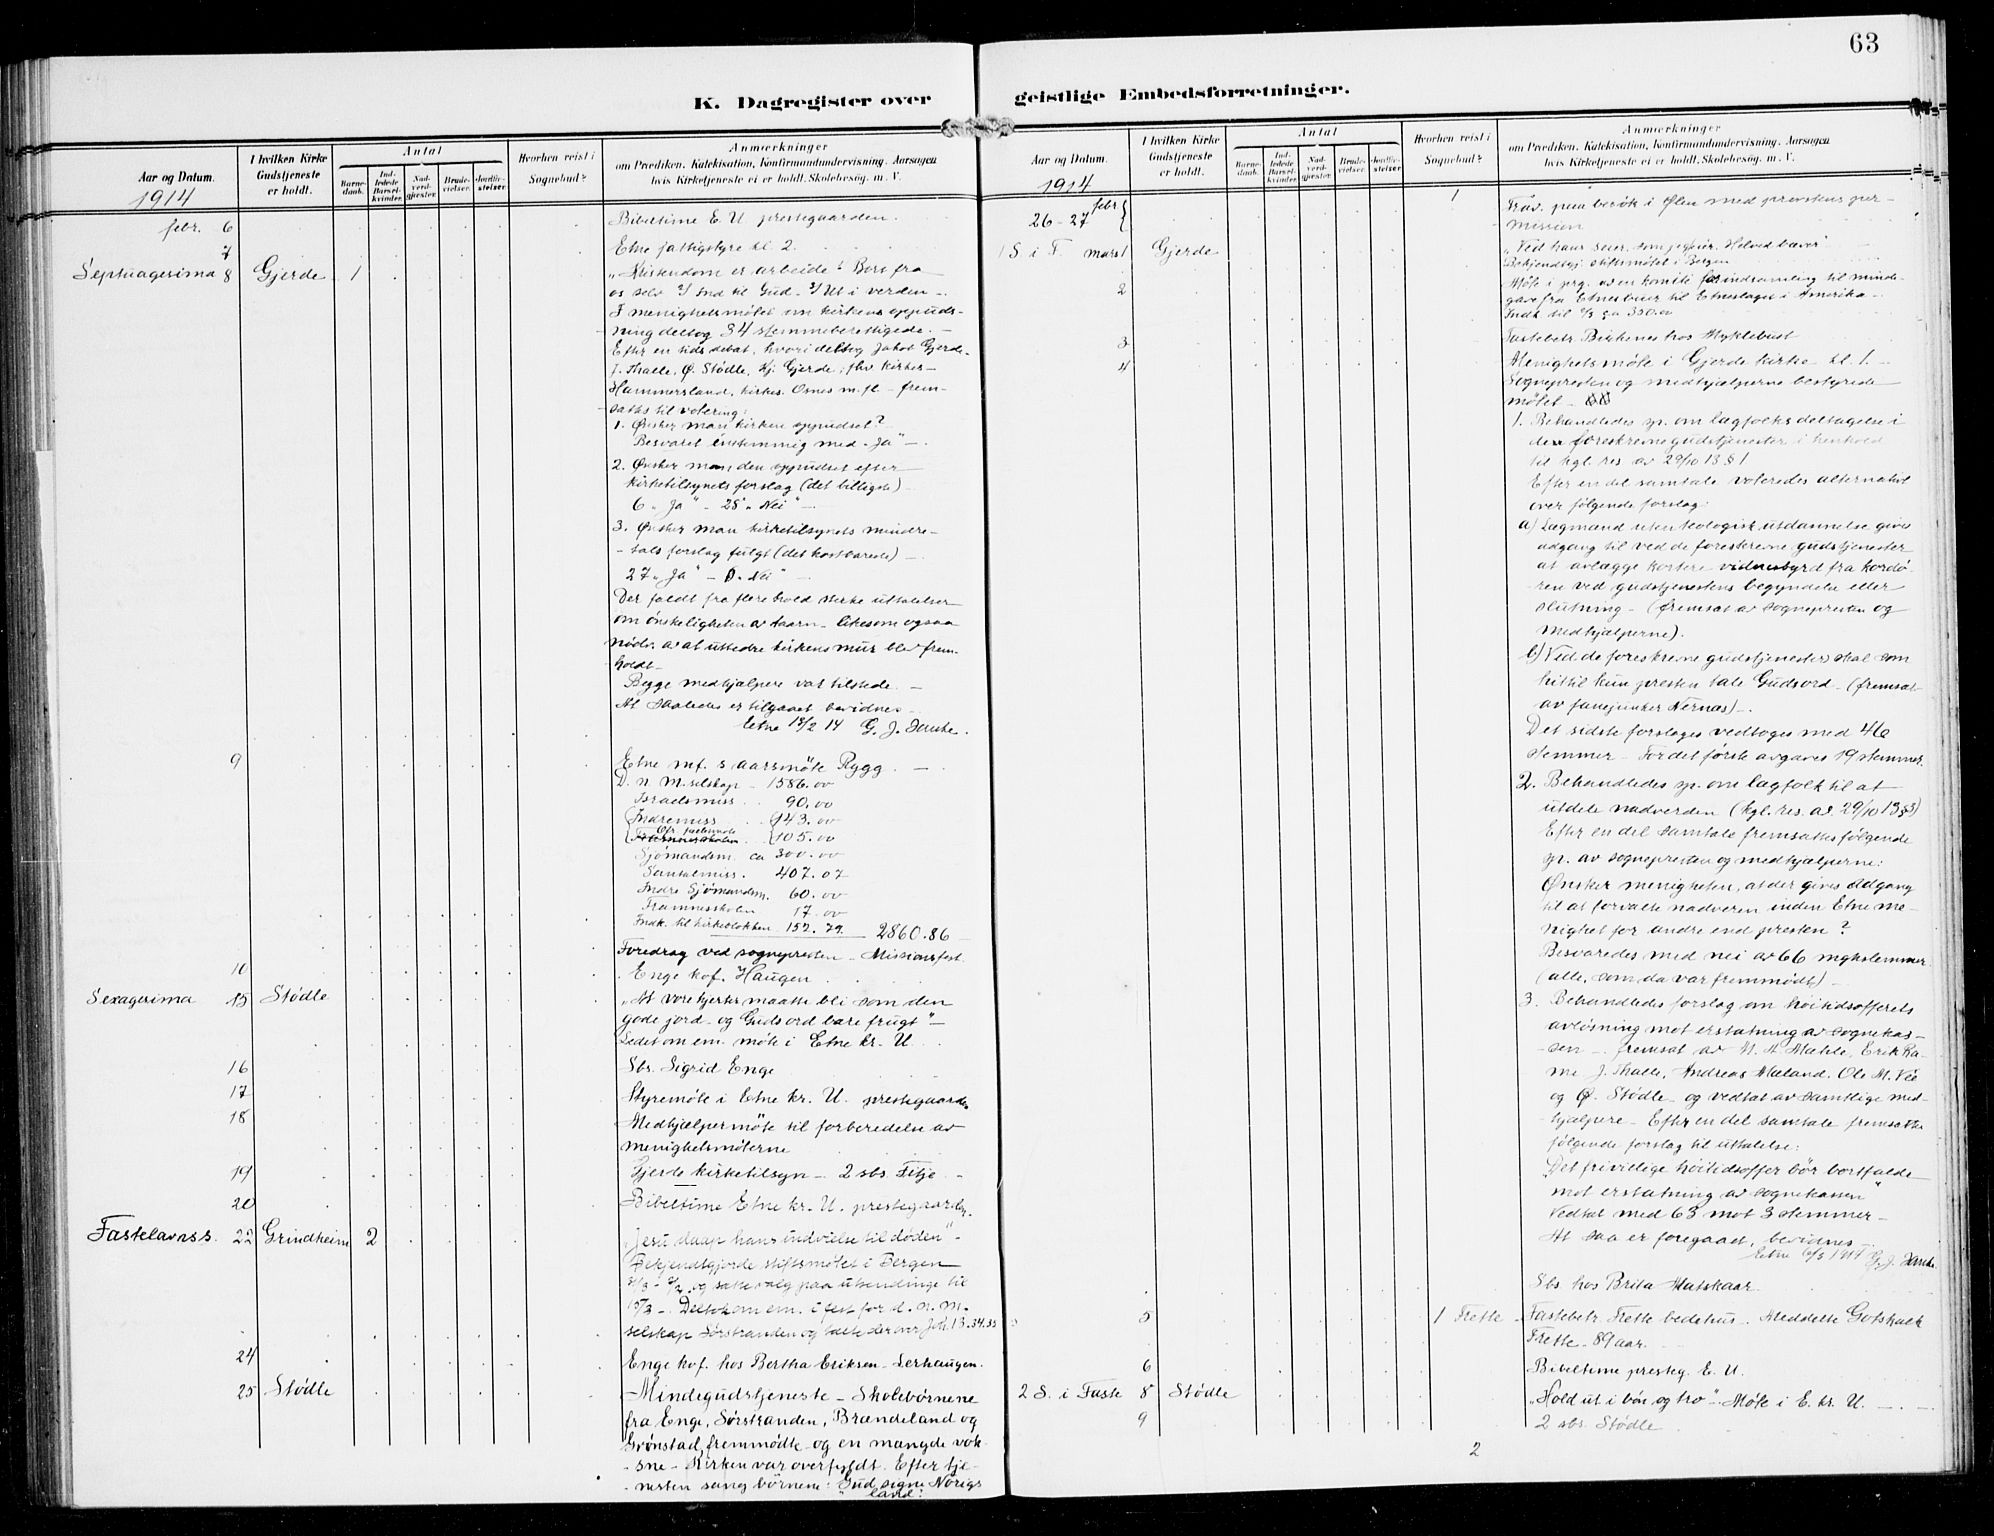 63
K. Dagregister over geistlige Embedsforretninger.
Aar og Datum.
1914
I hvilken Kirke Gudstjeneste er holdt.
Antal
Barnedaab.
Indledede Barselkvinder.
Nadverdgjester.
Brudevielser.
Jordfæstelser.
Hvorhen reist i Sognebud?
Anmærkninger
om Prædiken. Katekisation, Konfirmandundervisning. Aarsagen
hvis Kirketjeneste ei er holdt. Skolebesøg. m. V.
febr. 6 Bibeltime E. U. prestegaarden.
7 Etne fattigstyre kl 2.
Septuagesima 8 Gjerde 1 „Kristendom er arbeide": Bort fra
os selv 2) Ind til Gud - 3) Ut i verden -.
I menighetsmøtet om kirkens oppuds-
ning deltog 34 stemmeberettigede. -
Efter en tids debat, hvori deltog Jakob Gjerde,
J. Thalle, Ø. Stødle, Kj. Gjerde, fhv kirkes.
Hammersland, kirkes. Osnes m. fl. - frem-
sattes til votering:
1. Ønsker man kirken oppudset?
Besvaret enstemmig med „Ja" -.
2. Ønsker man den oppudset efter
kirketilsynets forslag (det billigste) -
6 „Ja" - 28 „Nei" -
3. Ønsker man kirketilsynets mindre-
tals forslag fulgt (det kostbareste) -.
27 „Ja" - 0 „Nei" -
Der faldt fra flere hold sterke uttalelser
om ønskeligheten av taarn - likesom ogsaa
nødv. av at utbedre kirkens mur blev frem-
holdt -
Begge medhjælpere var tilstede. -
At saaledes er tilgaaet bevidnes -
Etne 12/2 14 G. J.
9 Etne mf. s aarsmøte Rygg. -
D. n. M. selskap - 1586.00
Israelsmiss. 90.00
Indremiss. 143.00
105.00
Sjømandsm. ca 300.00
Santalmiss. 407.07
Indre Sjømandsm. 60.00
Framnesskolen 17.00
Indk. til kirkeklokken 152.79 2860.86
Foredrag ved sognepresten - Missionsfest.
10 Enge kof. Haugen
Sexagesima 15 Stødle „At vore hjerter maatte bli som den
gode jord - og Guds ord bære frugt" -
Ledet om em. møte i Etne kr. U.
16 Sbr. Sigrid Enge
17 Styremøte i Etne kr. U. prestegaarden
18 Medhjælpermøte til forberedelse av
menighetsmøterne
19 Gjerde kirketilsyn - 2 sbs. Fitje -
20 Bibeltime Etne kr. U. prestegaarden.
Fastelavnss. 22 Grindheim 2 „Jesu daap hans indvielse til døden" -
Bekjendtgjorde stiftsmøtet i Bergen
og satte valg paa utsendinge til
15/3 -. Deltok om em. i fest for d. n. M.
selskap Sørstranden og talte der over Joh. 13. 34.35
24 Enge kof. hos Bertha Eriksen - Lerhaugen.
25 Stødle Mindegudstjeneste - Skolebørnene
fra Enge, Sørstranden, Brændeland og
Grønstad, fremmødte og en mængde vok-
sne - Kirken var overfyldt. Efter tje-
nesten sang børnene: „Gud signe Norigs
land".
Aar og Datum.
1914
I hvilken Kirke Gudstjeneste er holdt.
Antal
Barnedaab.
Indledede Barselkvinder.
Nadverdgjester.
Brudevielser.
Jordfæstelser.
Hvorhen reist i Sognebud?
Anmærkninger
om Prædiken. Katekisation, Konfirmandundervisning. Aarsagen
hvis Kirketjeneste ei er holdt. Skolebesøg. m. V.
febr. 26-27 1 Fráv. paa besøk i Ølen med provstens per-
mission
1 S. i F. mars 1 Gjerde
Bekjendtgj. stiftsmøtet i Bergen
2 Møte i prg. av en komite for indsamling til minde-
gave fra Etnesbuer til Etneslaget i Amerika -.
Indk. til ca 350.00
3 Fastebetr. Birkenes hos Myklebust
4 Menighetsmøte i Gjerde kirke kl. 1. -
Sognepresten og medhjælperne bestyrede
møtet -
1. Behandledes sp. om lægfolks deltagelse i
de foreskrevne gudstjenester i henhold
til kgl. res. av 29/10 13 § 1
Efter en del samtale voteredes alternativt
over følgende forslag:
a) Lægmænd uten teologisk utdannelse gives
adgang til ved de foreskrevne gudstjenester
at avlægge kortere vidnesbyrd fra kordø-
ren ved gudstjenestens begyndelse eller
slutning - (fremsat av sognepresten og
medhjælperne).
b) Ved de foreskrevne gudstjenester skal som
hittil kun presten tale Guds ord - (fremsat
av fanejunker Nernæs) -.
Det sidste forslag es vedtoges med 46
stemmer - For det første avgaves 19 stemmer.
2. Behandledes sp. om lægfolk til at
utdele nadverden (kgl. res. av 29/10 13 § 3)
Efter en del samtale fremsattes følgende
sp. av sognepresten og medhjælperne:
Ønsker menigheten, at der gives adgang
til at forvalte nadveren inden Etne me-
nighet for andre end presten?
Besvaredes med nei av 66 mghstemmer
(alle, som da var fremmødt) -
3. Behandledes forslag om høitidsofferets
avløsning mot erstatning av sognekas-
sen - fremsat av N. A. Mæhle, Erik Ra-
me J. Thalle, Andreas Mæland. Ole M. Vie
og Ø. Stødle - og vedtat av samtlige med-
hjælpere - Efter en del samtale fremsattes
følgende forslag til uttalelse:
„Det frivillige høitidsoffer bør bortfalde
mot erstatning av sognekassen"
Vedtat med 63 mot 3 stemmer -
At saa er foregaat, bevidnes -
Etne 1914 G. J.
Sbs. hos Brita Matskaar
5 1 Frette Fastebetr. Frette bedehus - Meddelte Gotskalk
Frette - 89 aar.
6 Bibeltime presteg. E. U.
2 S. i Faste 8 Stødle „Hold ut i bøn og tro" - Møte i E. kr. U. -
9 2 sbs. Stødle
2